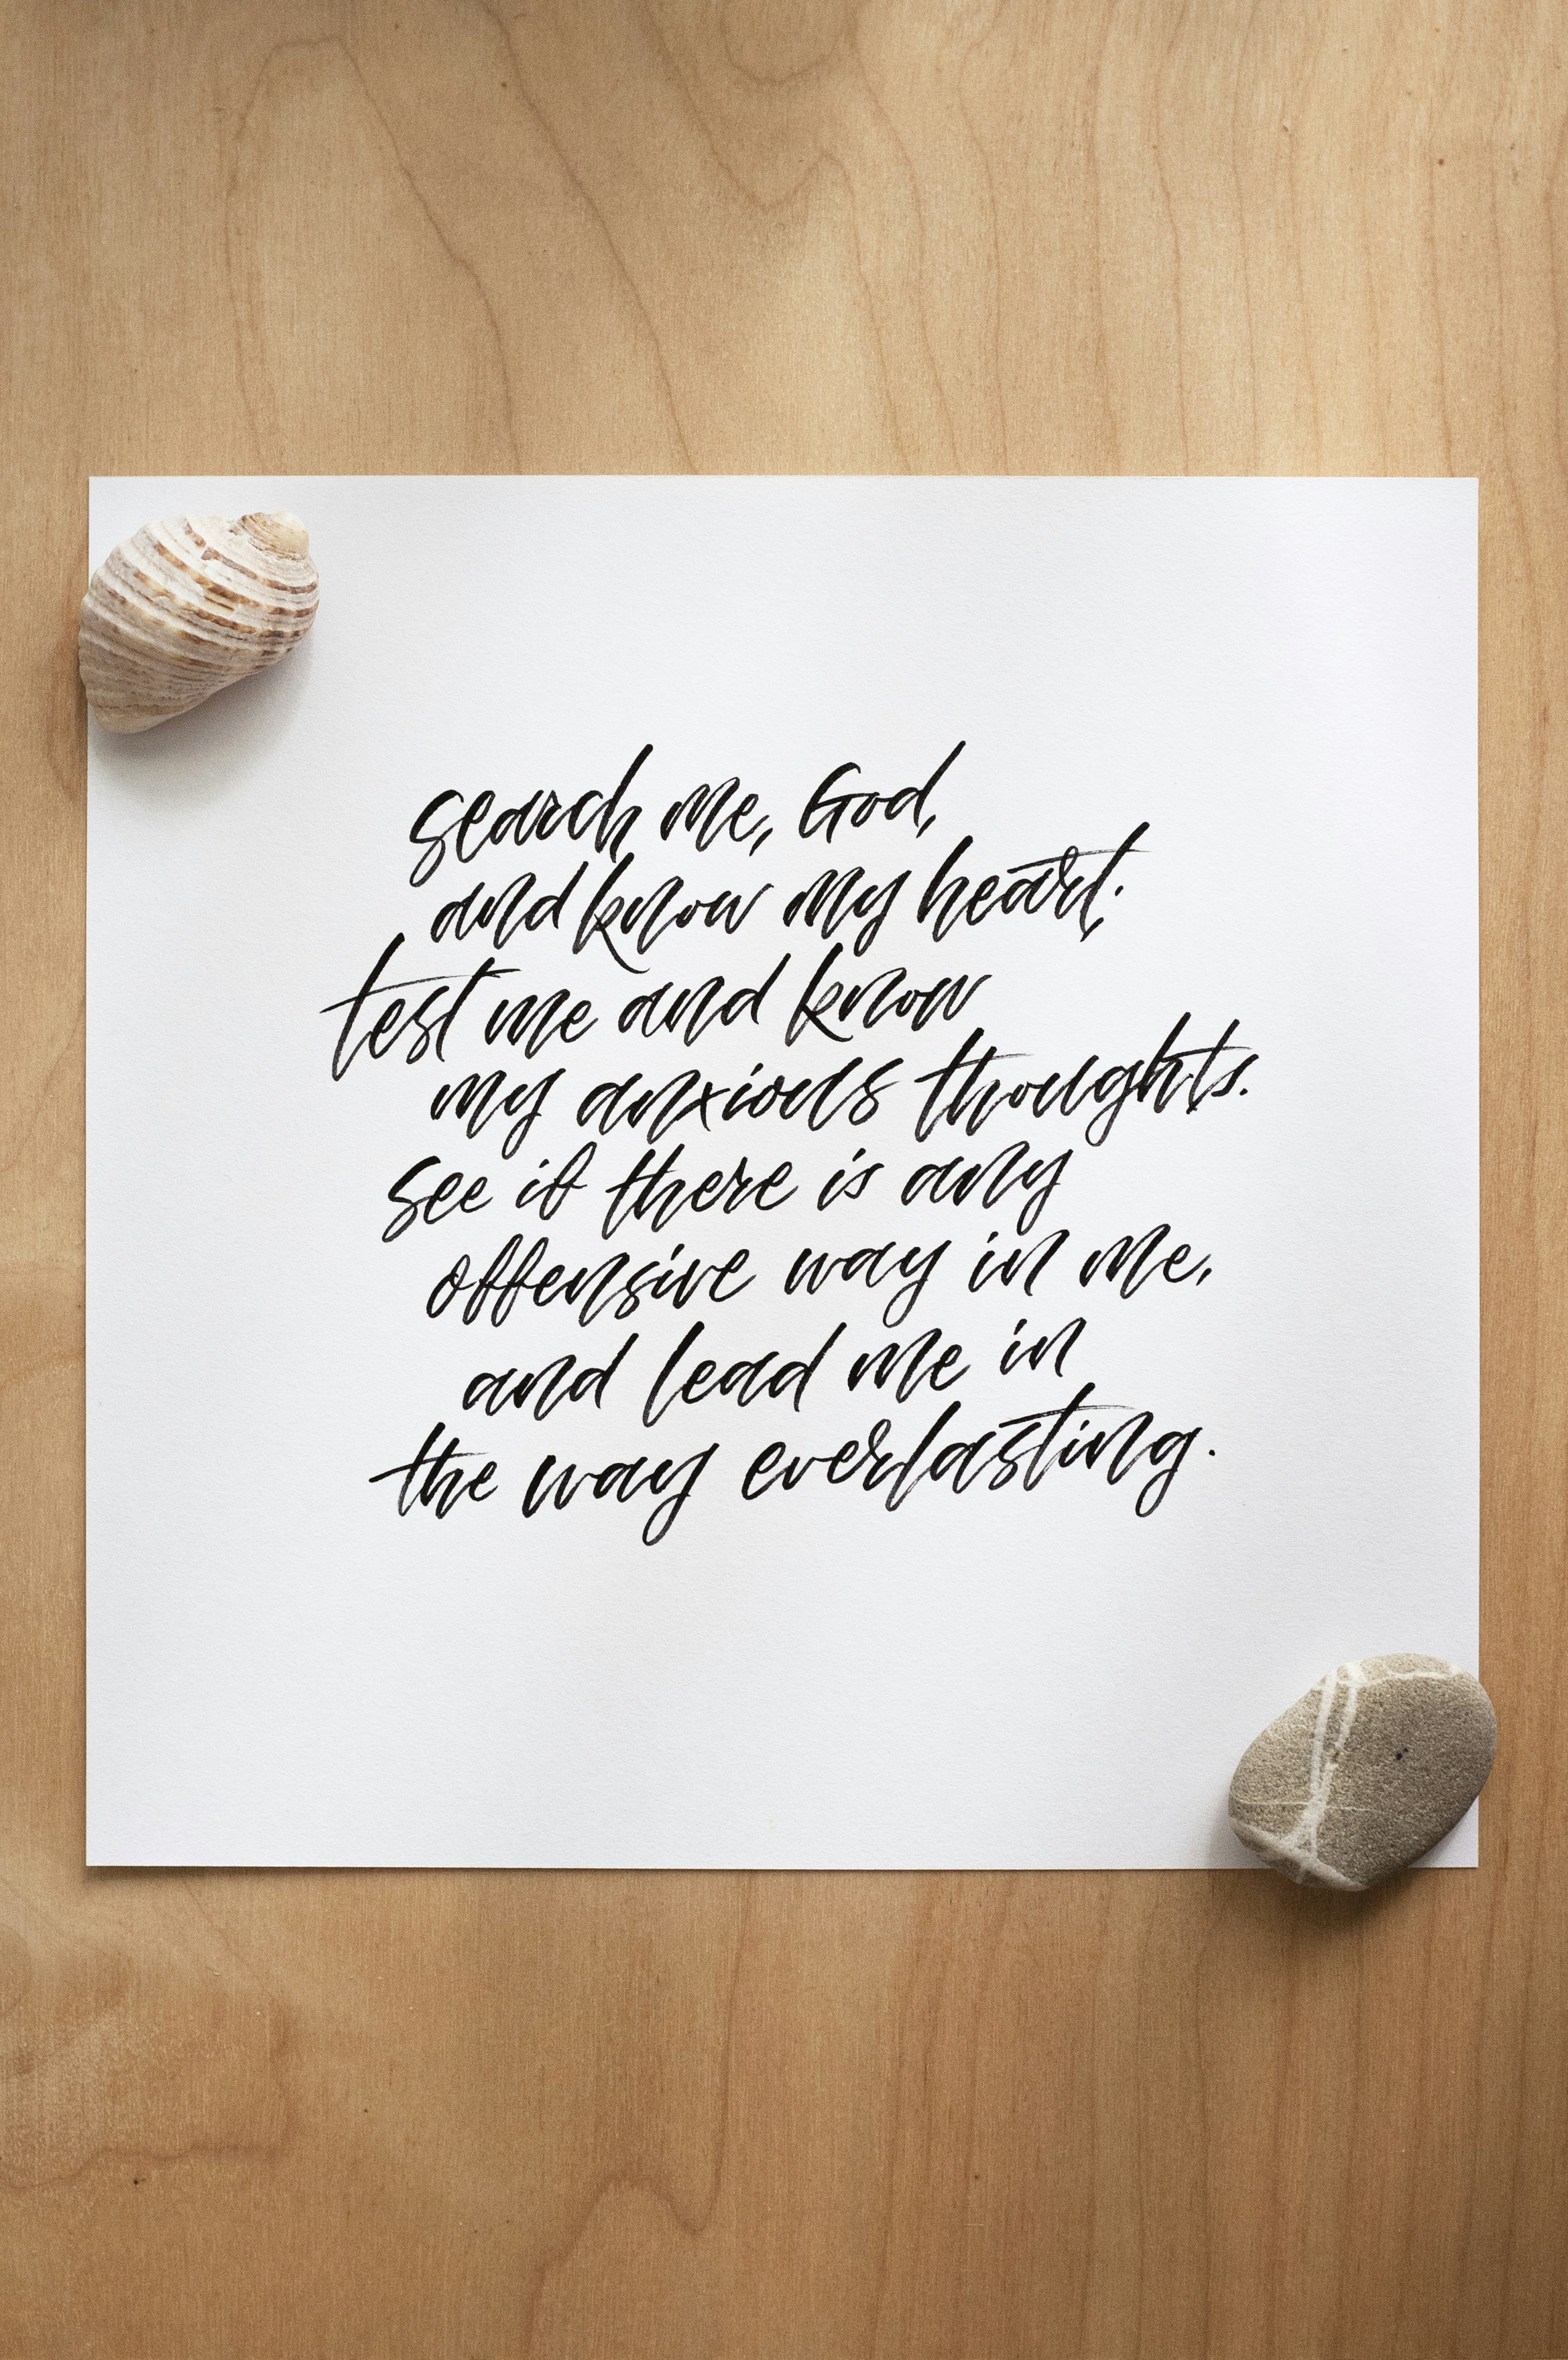 search me, God,
and know my heart;
test me and know
my anxious thoughts.
see if there is any
offensive way in me,
and lead me in
the way everlasting.